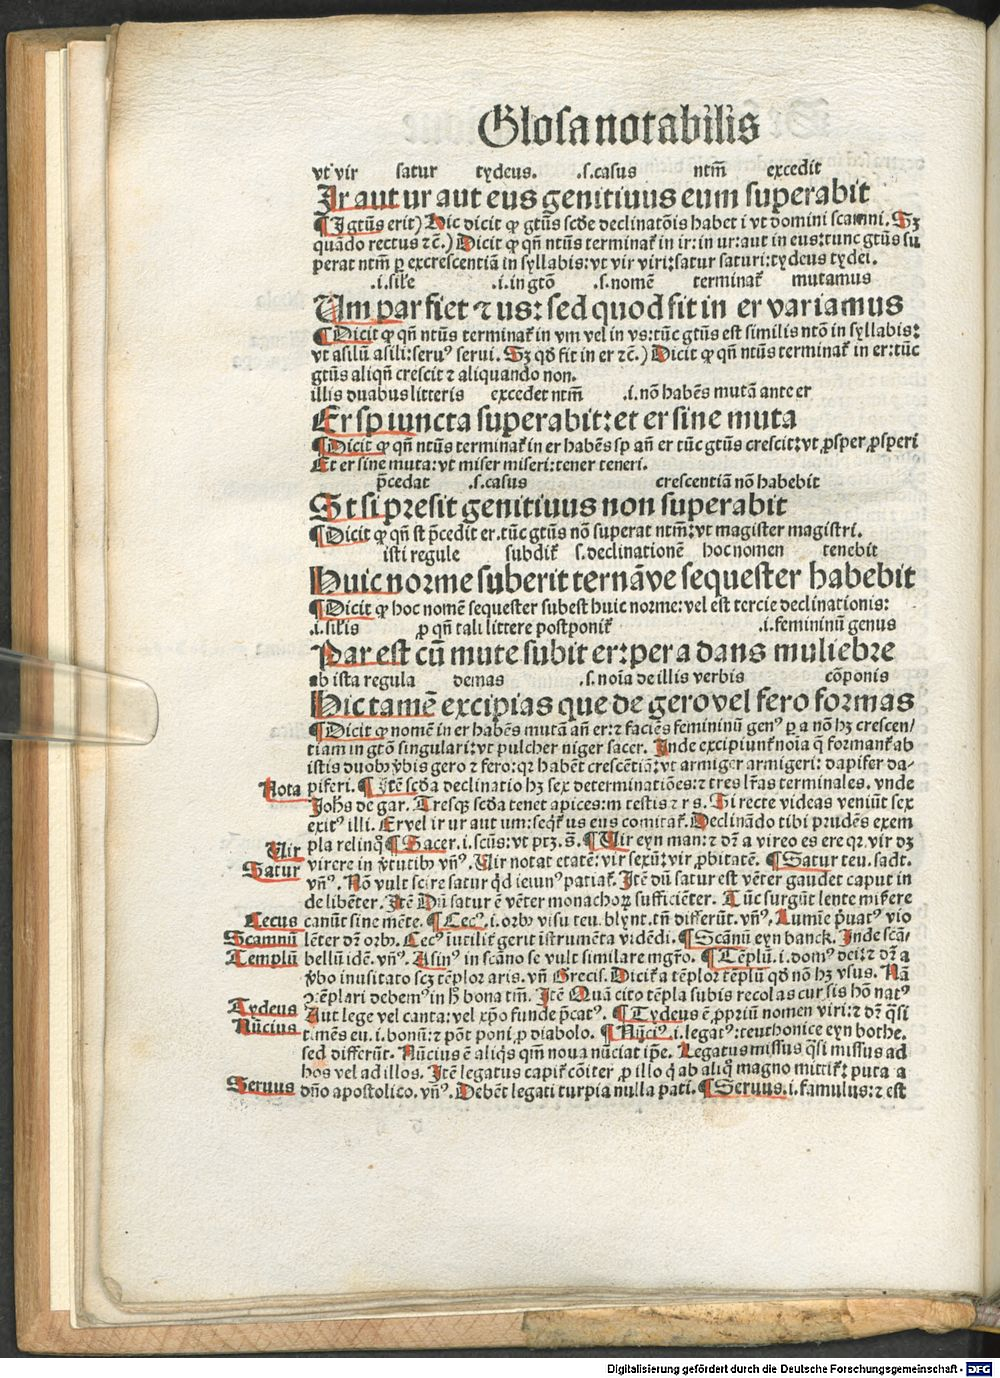 Glosa notabilis
vt vir satur tydeus. .s.casus ntm̄ excedit
Ir aut ur aut eus genitiuus eum superabit
¶ I gtūs erit) Hic dicit ꝙ gtūs scd̄e declinatōis habet i vt domini scamni. Sꝫ
quādo rectus ⁊c̄.) Dicit ꝙ qn̄ ntūs terminat᷑ in ir: in ur: aut in eus: tunc gtūs su
perat ntm̄ ꝑ excrescentiā in syllabis: vt vir viri: satur saturi: tydeus tydei.
.i.sil'e .i.in gtō .s.nomē terminat᷑ mutamus
Um par fiet ⁊ us: sed quod fit in er variamus
¶ Dicit ꝙ qn̄ ntūs terminat᷑ in vm vel in vs: tūc gtūs est similis ntō in syllabis:
vt asilū asili: seruꝰ serui. Sꝫ qd̄ fit in er ⁊c̄.) Dicit ꝙ qn̄ ntūs terminat᷑ in er: tūc
gtūs aliqn̄ crescit ⁊ aliquando non.
illis duabus litteris excedet ntm̄ .i. nō habēs mutā ante er
Er sp iuncta superabit: et er sine muta
¶ Dicit ꝙ qn̄ ntūs terminat᷑ in er habēs sp an̄ er tūc gtūs crescit: vt ꝓsper ꝓsperi
Et er sine muta: vt miser miseri: tener teneri.
p̄cedat .s.casus crescentiā nō habebit
St si presit genitiuus non superabit
¶ Dicit ꝙ qn̄ st p̄cedit er. tūc gtūs nō superat ntm̄: vt magister magistri.
isti regule subdit᷑ s.declinationē hoc nomen tenebit
Huic norme suberit ternāve sequester habebit
¶ Dicit ꝙ hoc nomē sequester subest huic norme: vel est tercie declinationis:
.i. sil'is ꝓ qn̄ tali littere postponit᷑ .i. femininū genus
Par est cū mute subit er: per a dans muliebre
ab ista regula demas .s. noīa de illis verbis cōponis
Hic tamē excipias que de gero vel fero formas
¶ Dicit ꝙ nomē in er habēs mutā an̄ er: ⁊ faciēs femininū genꝰ ꝑ a nō hꝫ crescen/
tiam in gtō singulari: vt pulcher niger sacer. Inde excipiunt᷑ noīa q̄ formant᷑ ab
istis duobꝫ v̄bis gero ⁊ fero: qꝛ habēt crescētiā: vt armiger armigeri: dapifer da-
Nota piferi. ¶ Itē scd̄a declinatio hꝫ sex determinatiōes: ⁊ tres lr̄as terminales. vnde
Joh̄s de gar. Tresqꝫ scd̄a tenet apices: m testis ⁊ r s. Si recte videas veniūt sex
exitꝰ illi. Er vel ir ur aut um: seqt᷑ us eus comitat᷑. Declinādo tibi prudēs exem
Vir pla relinqꝰ ¶ Sacer. i. scūs: vt ptꝫ. s̄. ¶ Vir eyn man: ⁊ dr̄ a vireo es ere qꝛ vir dꝫ
Satur virere in v̄tutibꝫ vn̄ꝰ. Vir notat etatē: vir sexū: vir ꝓbitatē. ¶ Satur teu. sadt.
vn̄ꝰ. Nō vult scire satur qd̄ ieiunꝰ patiat᷑. Itē dū satur est vēter gaudet caput in
de libēter. Itē Dū satur ē vēter monachoꝝ sufficiēter. Tūc surgūt lente miserere
Cecus canūt sine mēte. ¶ Cecꝰ. i. orbꝰ visu teu. blynt. tn̄ differūt. vn̄ꝰ. Lumīe p̄uatꝰ vio
Scamnū lēter dr̄ orbꝰ. Cecꝰ iutilit᷑ gerit īstrumēta vidēdi. ¶ Scānū eyn banck. Inde scā/
Templū bellū idē. vn̄ꝰ. Asinꝰ in scāno se vult similare mgr̄o. ¶ Tēplū. i. domꝰ dei: ⁊ dr̄ a
v̄bo inusitato scꝫ tēplor aris. vn̄ Grecis. Dicit᷑ a tēplor tēplū qd̄ nō hꝫ vsus. Nā
ɔtēplari debemꝰ in h̄ bona tm̄. Itē Quā cito tēpla subis recolas cur sis hō natꝰ
Tydeus Aut lege vel canta: vel xp̄o funde p̄catꝰ. ¶ Tydeus ē ꝓpriū nomen viri: ⁊ dr̄ q̄si
Nūcius timēs eu. i. bonū: ⁊ pōt poni ꝓ diabolo. ¶ Nūciꝰ. i. legatꝰ: teuthonice eyn bothe.
sed differūt. Nūcius ē aliqs qm̄ noua nūciat ip̄e. Legatus missus q̄si missus ad
hos vel ad illos. Itē legatus capit᷑ cōiter ꝓ illo q̄ ab aliqꝰ magno mittit᷑: puta a
Seruus dn̄o apostolico. vn̄ꝰ. Debēt legati turpia nulla pati. ¶ Seruus. i. famulus: ⁊ est
Digitalisierung gefördert durch die Deutsche Forschungsgemeinschaft - DFG